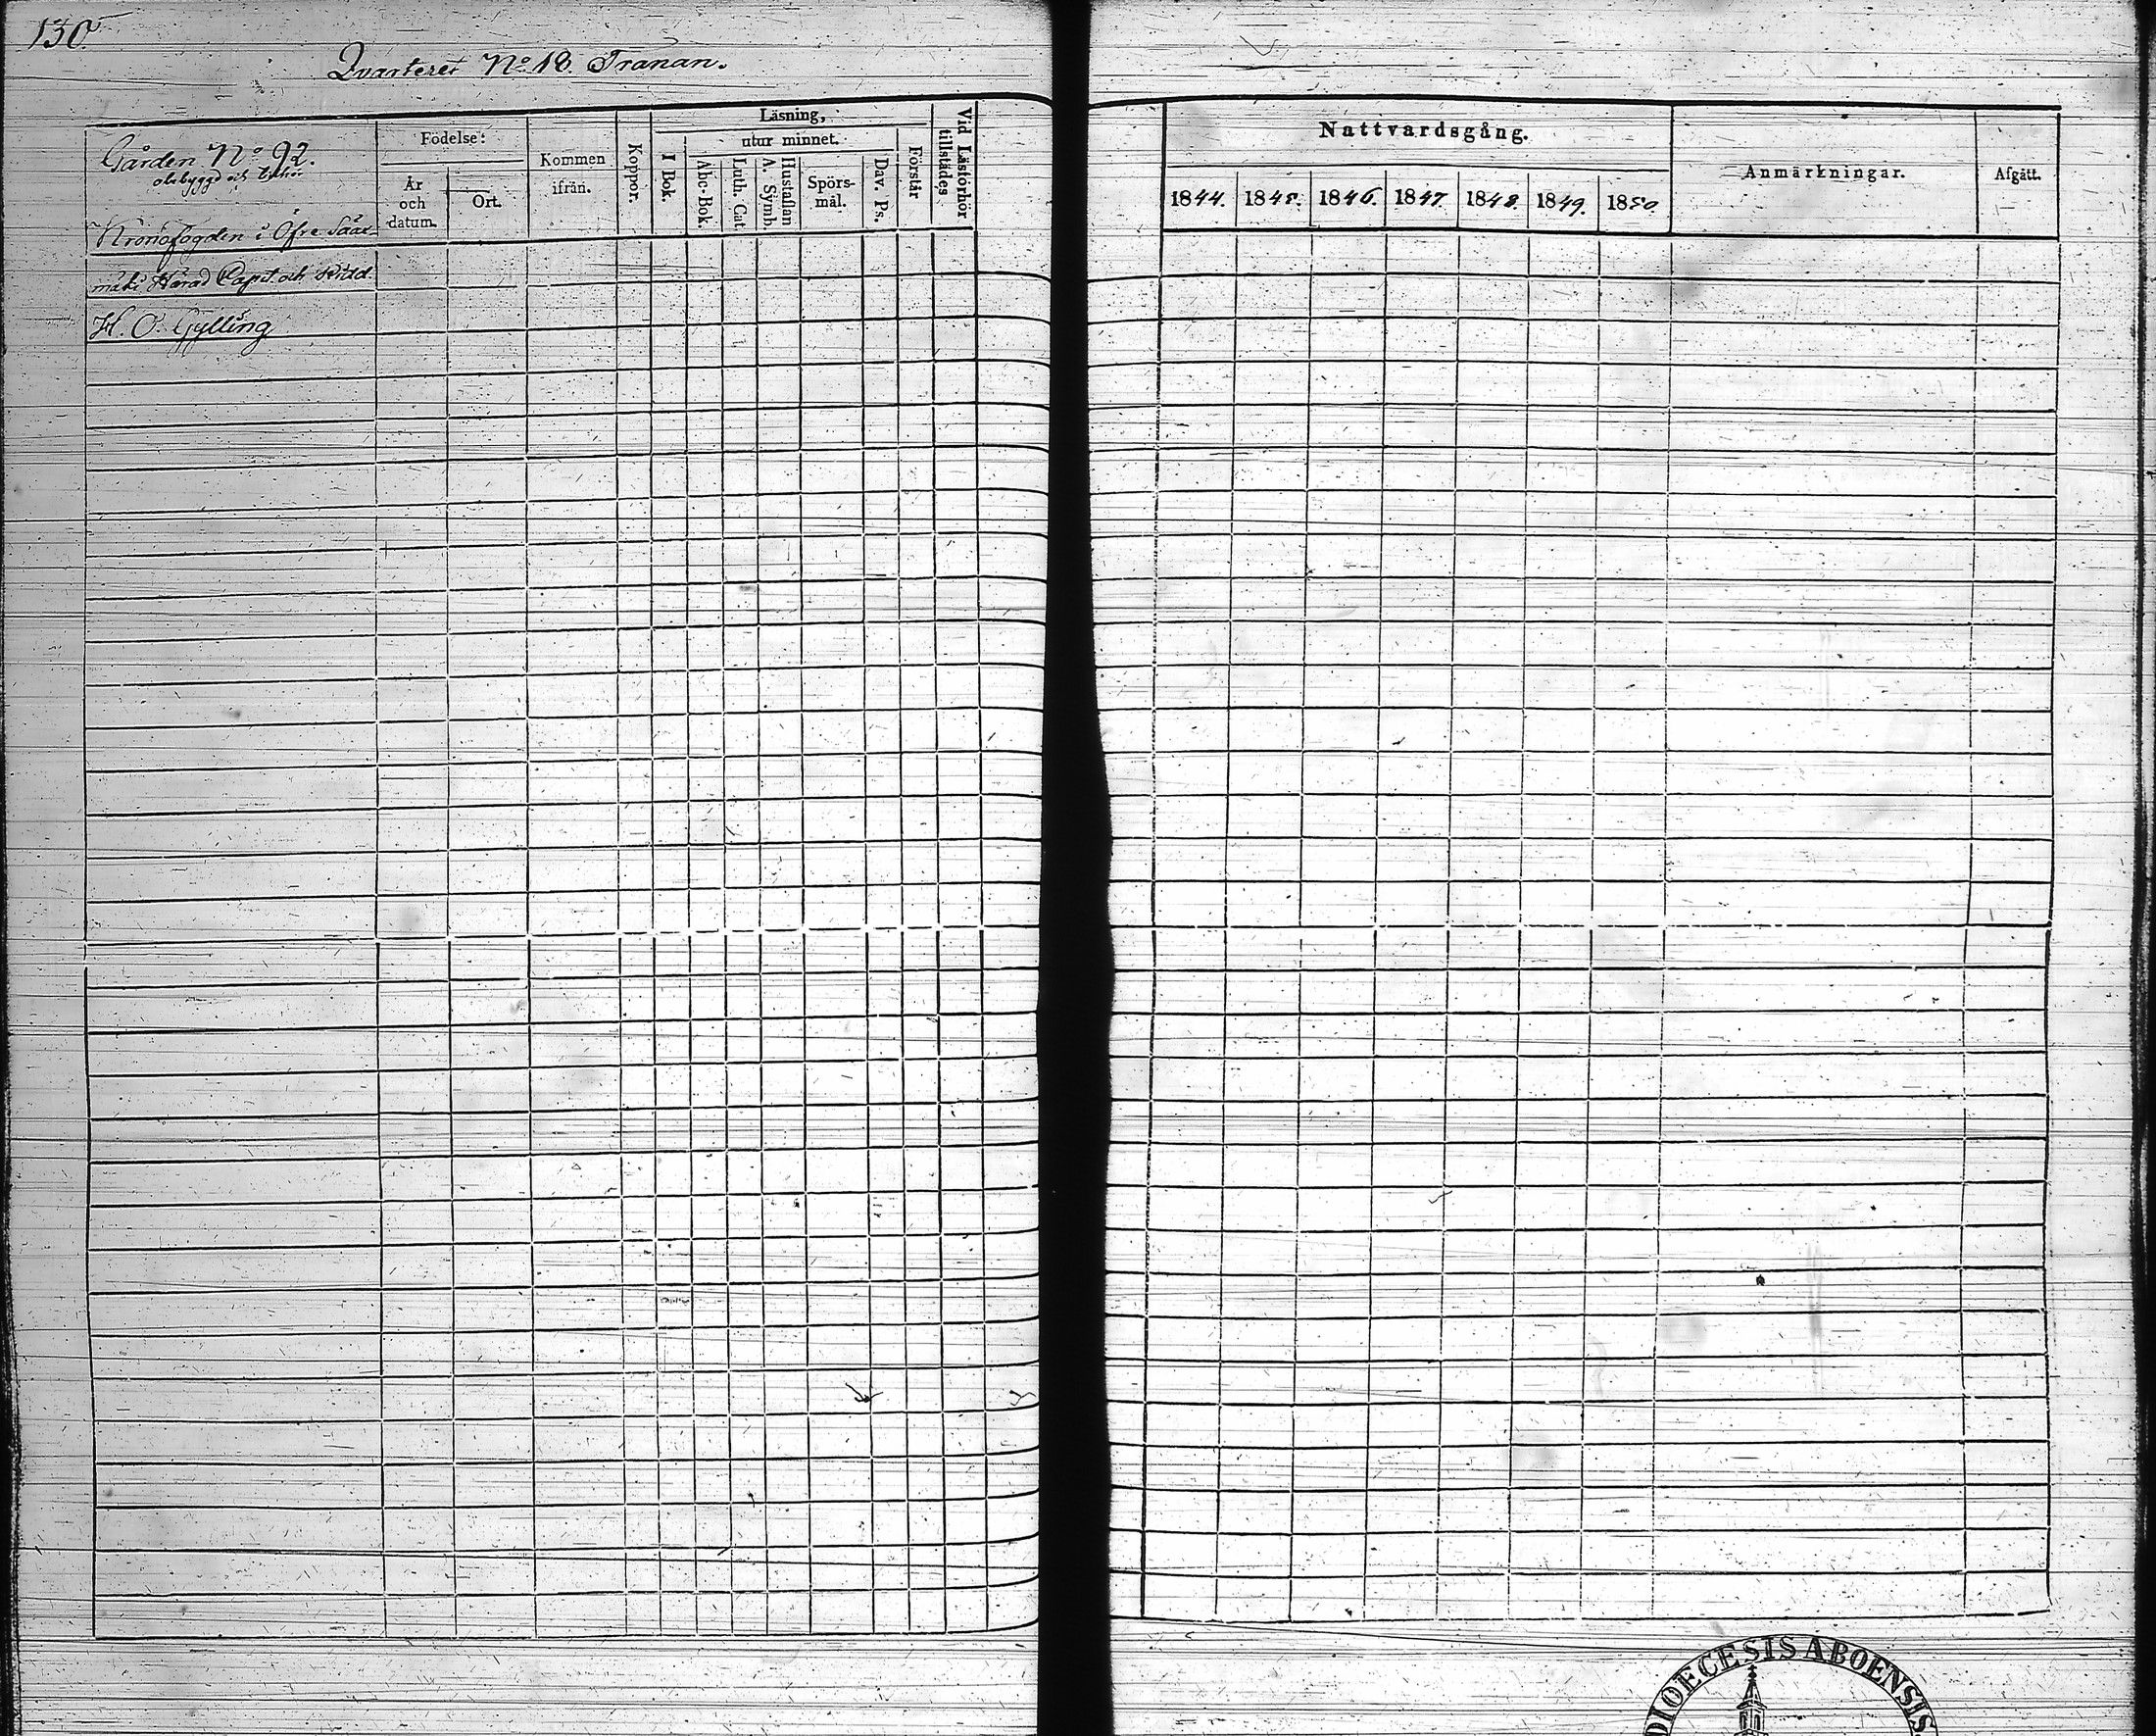 130
Quarteret No 18. Tranan.
Gården No 92.
obebyggd och
Kronofogden i Öfre Sääx-
mäki Härad Capit. och Ridd.
H. O. Gylling
Födelse:
År
och
datum.
Ort.
Kommen
ifrån.
Koppor.
Läsning,
I Bok.
utur minnet.
Abc-Bok.
Luth. Cat
Hustaflan
A. Symb.
Spörs-
mål.
Dav. Ps.
Förstår
Vid Läsförhör
tillstädes
Nattvardsgång.
1844. 1845. 1846. 1847 1848. 1849. 1850.
Anmärkningar.
Afgått.
DIOECESIS ABOENSIS